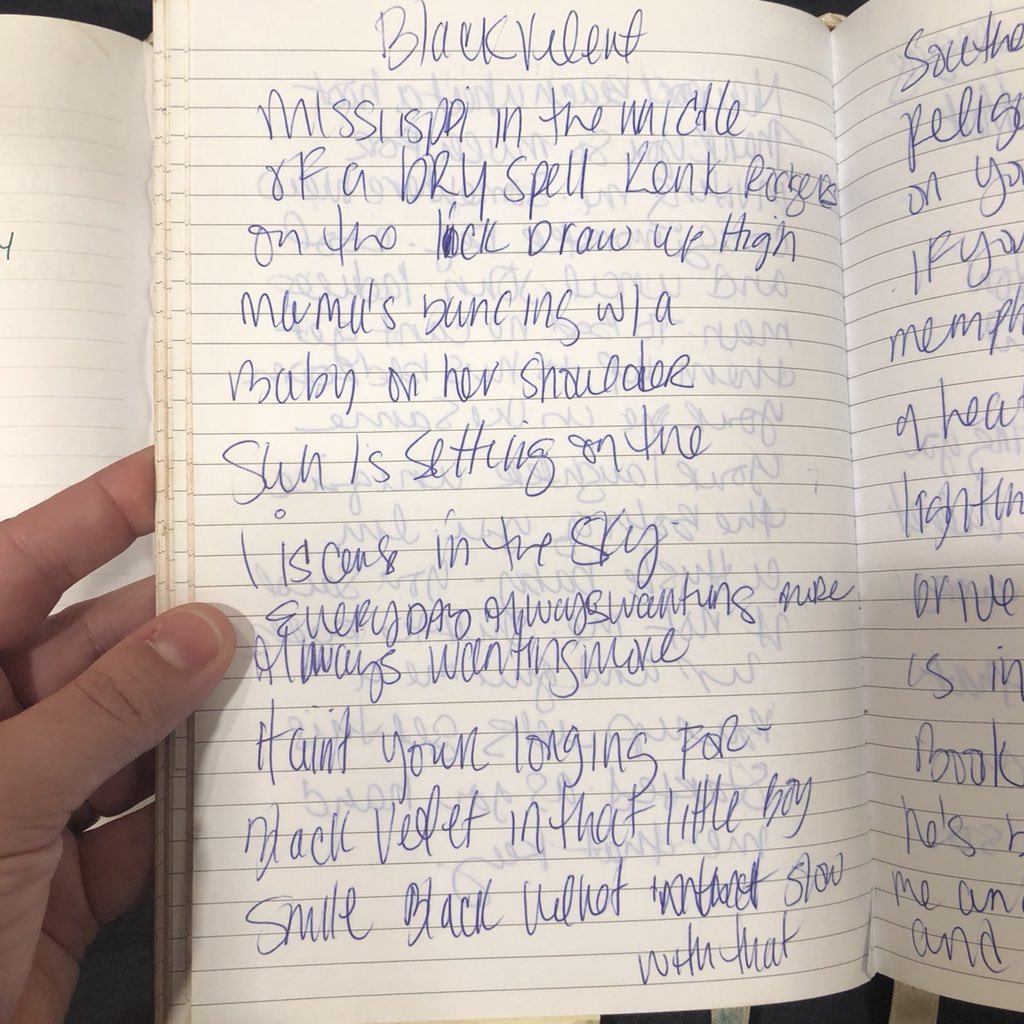 Black Velent
Mississippi in the middle
of a DRY spell Renk Rogers
on the lock Draw up High
Mama's Dancing w/a
Baby on her shoulder
Sun is setting on the
liscens in the sky.
EVERYDAY Always wanting more
Always wanting more
Haint your longing FOR-
Black Velvet in that little boy
Smile Black Velvet slow
with that
Southe
relige
on you
IF you
memph
a heat
lightin
Drive
is in
Book
he's b
me and
and